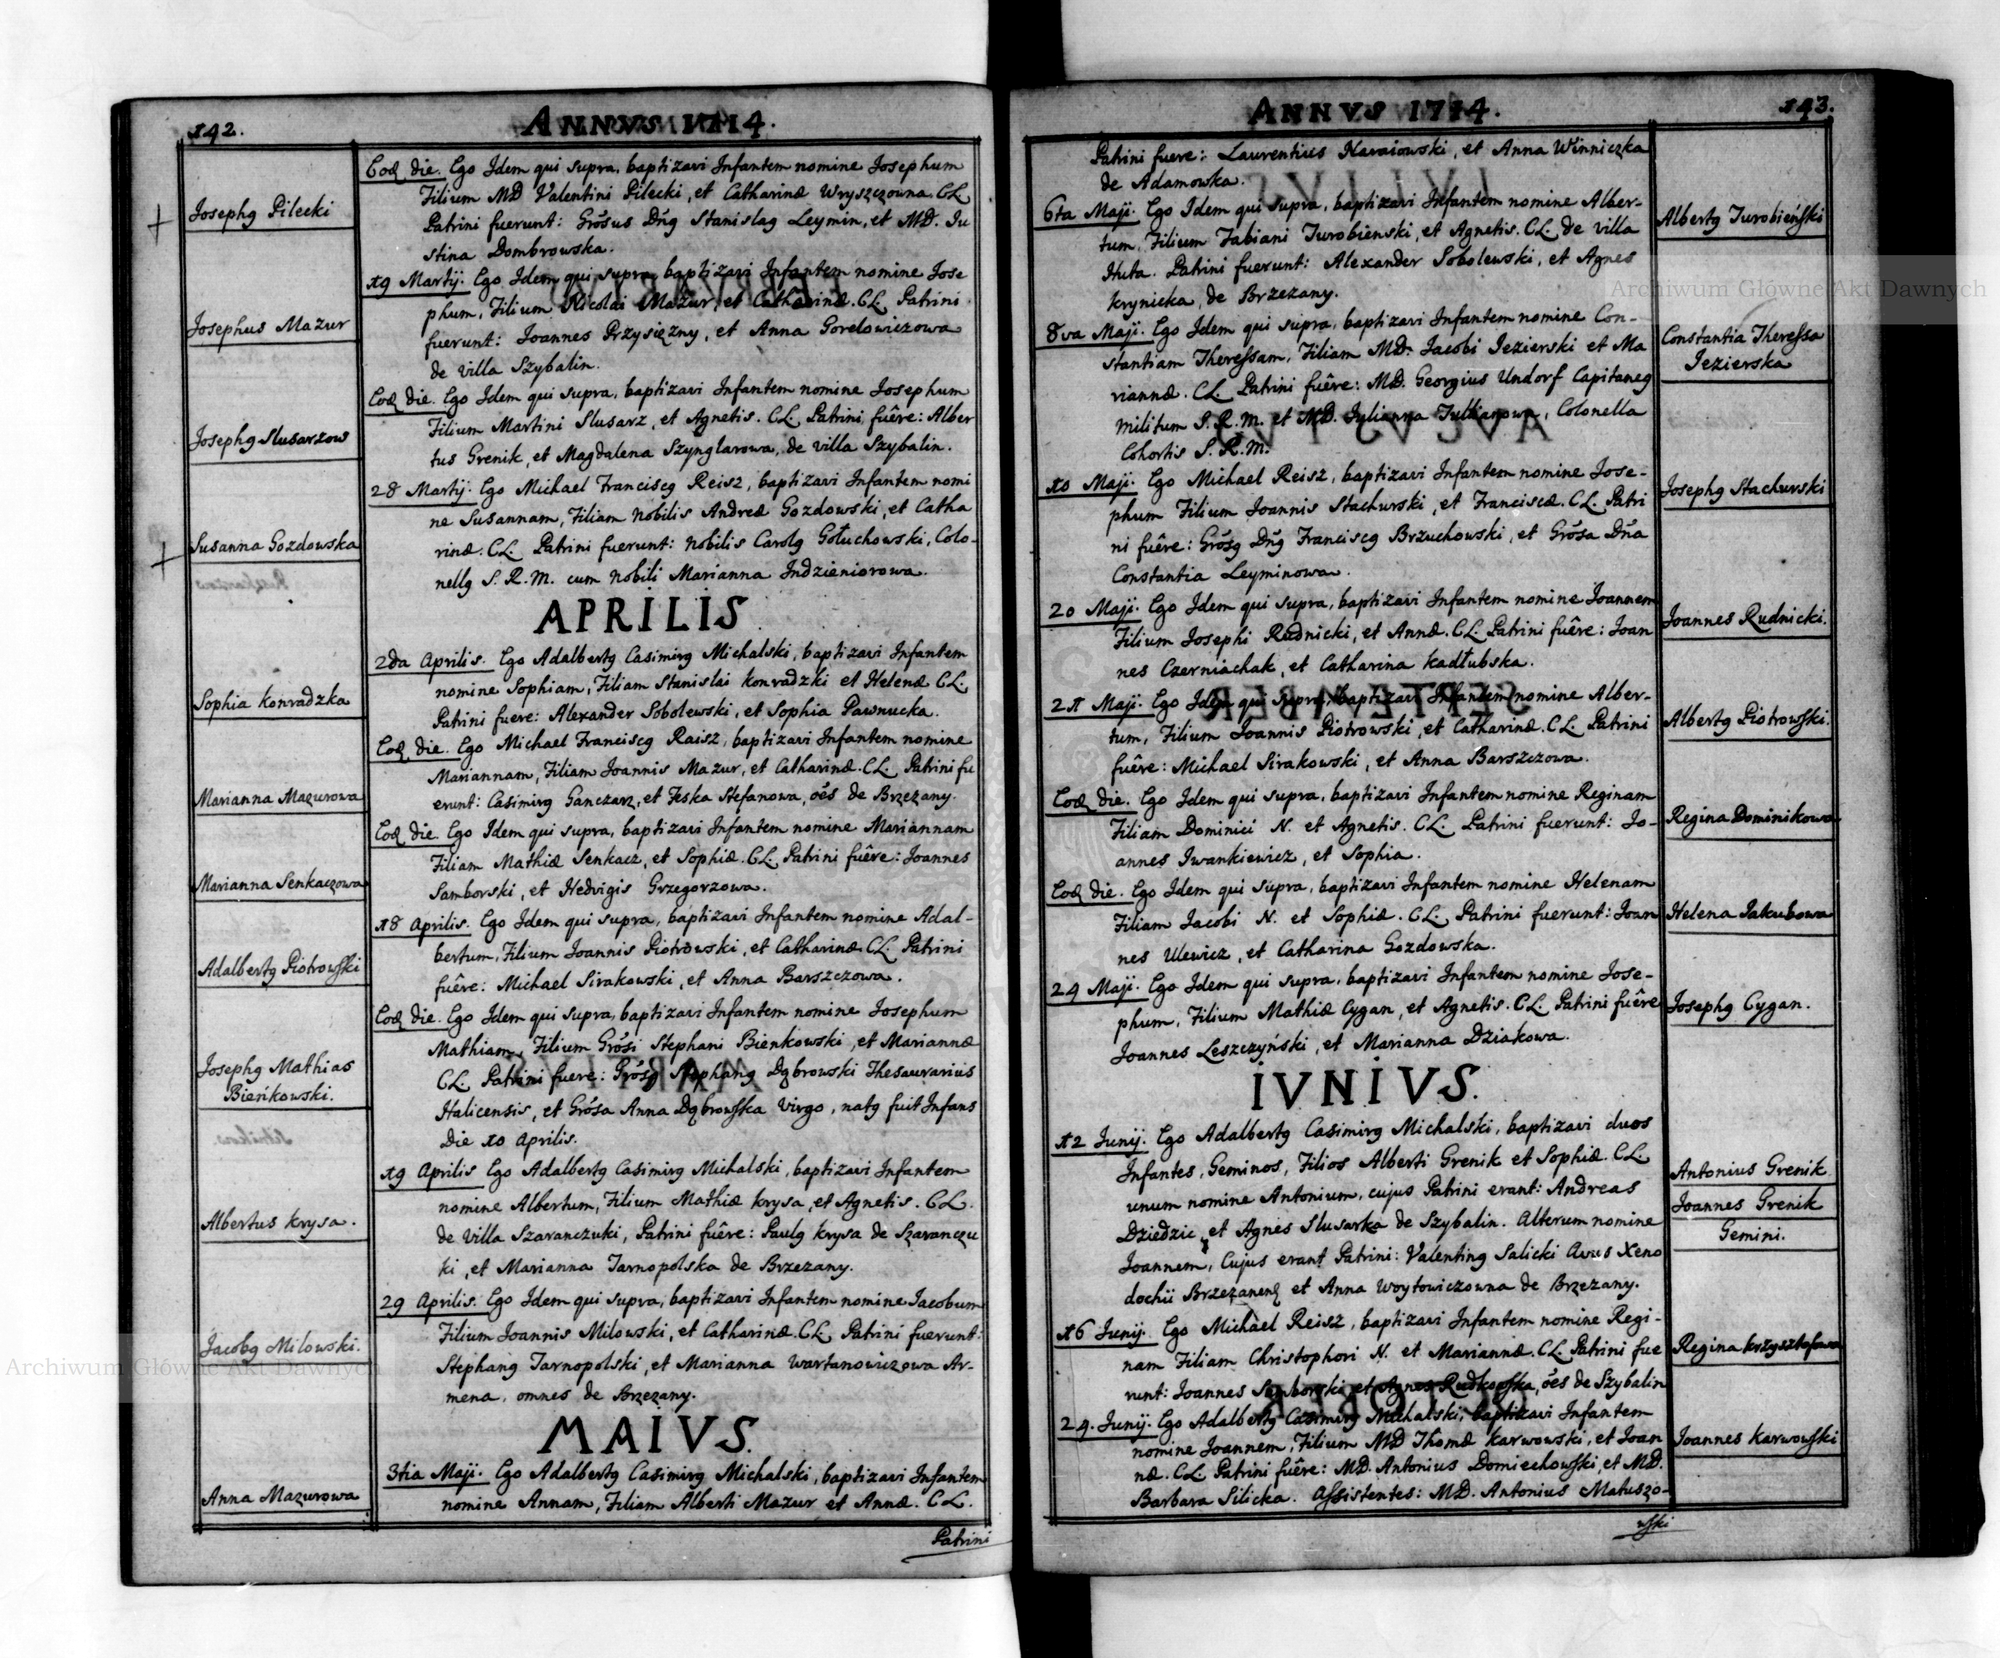 142.
ANNVS 1714.
Josephꝯ Pilecki
Josephus Mazur
Josephꝯ Slusarzow
Susanna Gozdowska
Sophia Konradzka
Marianna Mazurowa
Marianna Senkaczowa
Adalbertꝯ Piotrowski
Josephꝯ Mathias
Bieńkowski.
Albertus Krysa.
Jacobꝯ Milowski.
Anna Mazurowa
Eod die. Ego Idem qui supra, baptizavi Infantem nomine Josephum
Filium MD Valentini Pilecki, et Catharinæ Wryszczowna. CL
Patrini fuerunt: Grōsus Dn̄s Stanislaꝯ Leymin, et MD. Ju
stina Dombrowska.
19 Martij. Ego Idem qui supra baptizavi Infantem nomine Jose
phum, Filium Nicolai Mazur, et Catharinæ. CL. Patrini
fuerunt: Joannes Przysiężny, et Anna Gorelowiczowa
de villa Szybalin.
Eod die. Ego Idem qui supra, baptizavi Infantem nomine Josephum
Filium Martini Slusarz, et Agnetis. CL. Patrini fuêre: Alber
tus Grenik, et Magdalena Szynglarowa, de villa Szybalin.
28 Martij. Ego Michael Franciscꝯ Reisz, baptizavi Infantem nomi
ne Susannam, Filiam Nobilis Andreæ Gozdowski, et Catha
rinæ. CL. Patrini fuerunt: Nobilis Carolꝯ Gołuchowski, Colo-
nellꝯ S. R. M. cum Nobili Marianna Indzieniorowa.
APRILIS
2da Aprilis. Ego Adalbertꝯ Casimirꝯ Michalski, baptizavi Infantem
nomine Sophiam, Filiam Stanislai Konradzki et Helenæ CL.
Patrini fuere: Alexander Sobolewski, et Sophia Pawnucka.
Eod die. Ego Michael Franciscꝯ Raisz, baptizavi Infantem nomine
Mariannam, Filiam Joannis Mazur, et Catharinæ. CL. Patrini fu
erunt: Casimirꝯ Ganczarz, et Feska Stefanowa, oēs de Brzezany.
Eod die. Ego Idem qui supra, baptizavi Infantem nomine Mariannam
Filiam Mathiæ Senkacz, et Sophiæ. CL. Patrini fuêre: Joannes
Samborski, et Hedvigis Grzegorzowa.
18 Aprilis. Ego Idem qui supra, baptizavi Infantem nomine Adal-
bertum, Filium Joannis Piotrowski, et Catharinæ. CL. Patrini
fuêre: Michael Sirakowski, et Anna Barszczowa.
Eod die. Ego Idem qui supra, baptizavi Infantem nomine Josephum
Mathiam, Filium Grōsi Stephani Bieńkowski, et Mariannæ
CL. Patrini fuere: Grōsꝯ Stephanꝯ Dąbrowski Thesaurarius
Halicensis, et Grōsa Anna Dąbrowska Virgo, natꝯ fuit Infans
Die 10 Aprilis.
19 Aprilis Ego Adalbertꝯ Casimirꝯ Michalski, baptizavi Infantem
nomine Albertum, Filium Mathiæ Krysa, et Agnetis. CL.
de villa Szaranczuki, Patrini fuêre: Paulꝯ Krysa de Szaranczu
ki, et Marianna Tarnopolska de Brzezany.
29 Aprilis. Ego Idem qui supra, baptizavi Infantem nomine Jacobum
Filium Joannis Milowski, et Catharinæ. CL Patrini fuerunt:
Stephanꝯ Tarnopolski, et Marianna Wartanowiczowa Ar-
mena, omnes de Brzezany.
MAIVS.
3tia Maji. Ego Adalbertꝯ Casimirꝯ Michalski, baptizavi Infantem
nomine Annam, Filiam Alberti Mazur et Annæ. CL.
Patrini
ANNVS 1714.
143.
Patrini fuere: Laurentius Naraiowski, et Anna Winniczka
de Adamowka.
6ta Maji. Ego Idem qui supra, baptizavi Infantem nomine Alber-
tum, Filium Fabiani Turobieński, et Agnetis. CL. de villa
Huta. Patrini fuerunt: Alexander Sobolewski, et Agnes
Krynicka, de Brzezany.
8va Maji. Ego Idem qui supra, baptizavi Infantem nomine Con-
stantiam Theressam, Filiam MD. Jacobi Jezierski et Ma
riannæ. CL Patrini fuêre: MD. Georgius Undorf Capitaneꝯ
militum S. R. M. et MD. Julianna Julianowa, Colonella
Cohortis S. R. M.
10 Maji. Ego Michael Reisz, baptizavi Infantem nomine Jose-
phum Filium Joannis Stachurski, et Franciscæ. CL. Patri
ni fuêre: Grōsꝯ Dn̄s Franciscꝯ Brzuchowski, et Grōsa Dn̄a
Constantia Leyminowa.
20 Maji. Ego Idem qui supra, baptizavi Infantem nomine Joannem
Filium Josephi Rudnicki, et Annæ. CL. Patrini fuêre: Joan
nes Czerniachak, et Catharina Kadłubska.
21 Maji. Ego Idem qui supra, baptizavi Infantem nomine Alber-
tum, Filium Joannis Piotrowski, et Catharinæ. CL. Patrini
fuêre: Michael Sirakowski, et Anna Barszczowa.
Eod die. Ego Idem qui supra, baptizavi Infantem nomine Reginam
Filiam Dominici N. et Agnetis. CL. Patrini fuerunt: Jo-
annes Iwankiewicz, et Sophia.
Eod die. Ego Idem qui supra, baptizavi Infantem nomine Helenam
Filiam Jacobi N. et Sophiæ. CL. Patrini fuerunt: Joan
nes Ulewicz, et Catharina Gozdowska.
24 Maji. Ego Idem qui supra, baptizavi Infantem nomine Jose-
phum, Filium Mathiæ Cygan, et Agnetis. CL. Patrini fuêre
Joannes Leszczyński, et Marianna Dziakowa.
IVNIVS.
12 Junij. Ego Adalbertꝯ Casimirꝯ Michalski, baptizavi duos
Infantes, Geminos, Filios Alberti Grenik et Sophiæ. CL.
unum nomine Antonium, cujus Patrini erant: Andreas
Dziedzic, et Agnes Slusarka de Szybalin. Alterum nomine
Joannem, Cujus erant Patrini: Valentinꝯ Salicki Avus Xeno
dochii Brzezanens et Anna Woytowiczowna de Brzezany.
16 Junij. Ego Michael Reisz, baptizavi Infantem nomine Regi-
nam Filiam Christophori N. et Mariannæ. CL Patrini fue
runt: Joannes Samborski et Agnes Rudkowska, oēs de Szybalin
24. Junij. Ego Adalbertꝯ Casimirꝯ Michalski, baptizavi Infantem
nomine Joannem, Filium MD Thomæ Karwowski, et Joan
næ. CL. Patrini fuêre: MD. Antonius Domiechowski, et MD.
Barbara Silicka. Assistentes: MD. Antonius Matuszo-
wski
Albertꝯ Turobieński
Constantia Theressa
Jezierska
Josephꝯ Stachurski
Joannes Rudnicki.
Albertꝯ Piotrowski.
Regina Dominikowa
Helena Jakubowa
Josephꝯ Cygan.
Antonius Grenik
Joannes Grenik
Gemini.
Regina Krzysztofowa
Joannes Karwowski
Archiwum Główne Akt Dawnych
Archiwum Główne Akt Dawnych